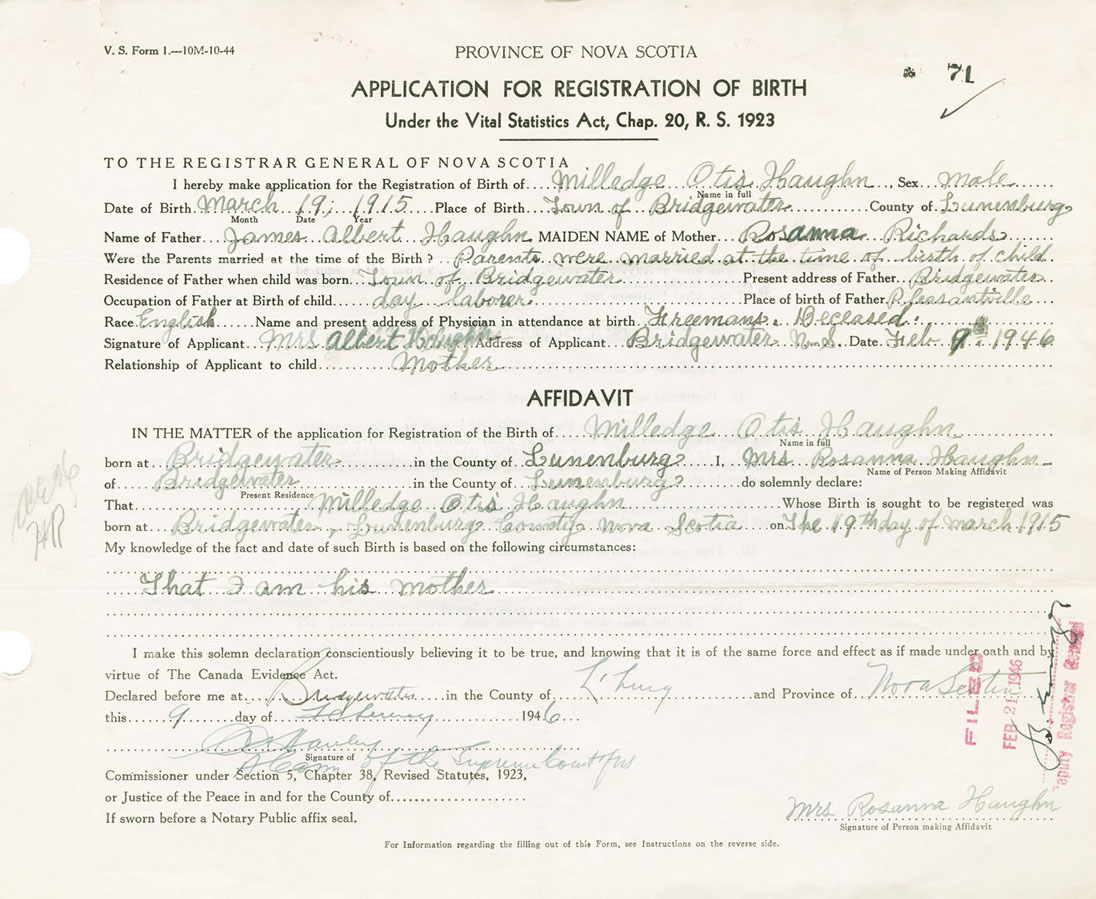 V. S. Form 1.—10M-10-44
PROVINCE OF NOVA SCOTIA
71
APPLICATION FOR REGISTRATION OF BIRTH
Under the Vital Statistics Act, Chap. 20, R. S. 1923
TO THE REGISTRAR GENERAL OF NOVA SCOTIA
I hereby make application for the Registration of Birth of Milledge Otis Haughn, Sex male
Name in full
Date of Birth March 19, 1915 Place of Birth Town of Bridgewater County of Lunenburg
Month Date Year
Name of Father James Albert Haughn MAIDEN NAME of Mother Rosanna Richards
Were the Parents married at the time of the Birth? Parents were married at the time of birth of child
Residence of Father when child was born Town of Bridgewater Present address of Father Bridgewater
Occupation of Father at Birth of child day laborer Place of birth of Father Pleasantville
Race English Name and present address of Physician in attendance at birth Freemans. Deceased.
Signature of Applicant Mrs Albert Haughn Address of Applicant Bridgewater N.S. Date Feb 9th 1946
Relationship of Applicant to child Mother
AFFIDAVIT
IN THE MATTER of the application for Registration of the Birth of Milledge Otis Haughn
Name in full
born at Bridgewater in the County of Lunenburg I, Mrs Rosanna Haughn
Name of Person Making Affidavit
of Bridgewater in the County of Lunenburg do solemnly declare:
Present Residence
That Milledge Otis Haughn Whose Birth is sought to be registered was
born at Bridgewater, Lunenburg County Nova Scotia on The 19th day of march 1915
My knowledge of the fact and date of such Birth is based on the following circumstances:
That I am his mother
I make this solemn declaration conscientiously believing it to be true, and knowing that it is of the same force and effect as if made under oath and by
virtue of The Canada Evidence Act.
Declared before me at Bridgewater in the County of L'burg and Province of Nova Scotia
this 9 day of February 1946
Signature of
A Com of the Supreme Court
Commissioner under Section 5, Chapter 38, Revised Statutes, 1923,
or Justice of the Peace in and for the County of
If sworn before a Notary Public affix seal.
Mrs Rosanna Haughn
Signature of Person making Affidavit
For Information regarding the filling out of this Form, see Instructions on the reverse side.
FILED
FEB 21 1946
Deputy Registrar General